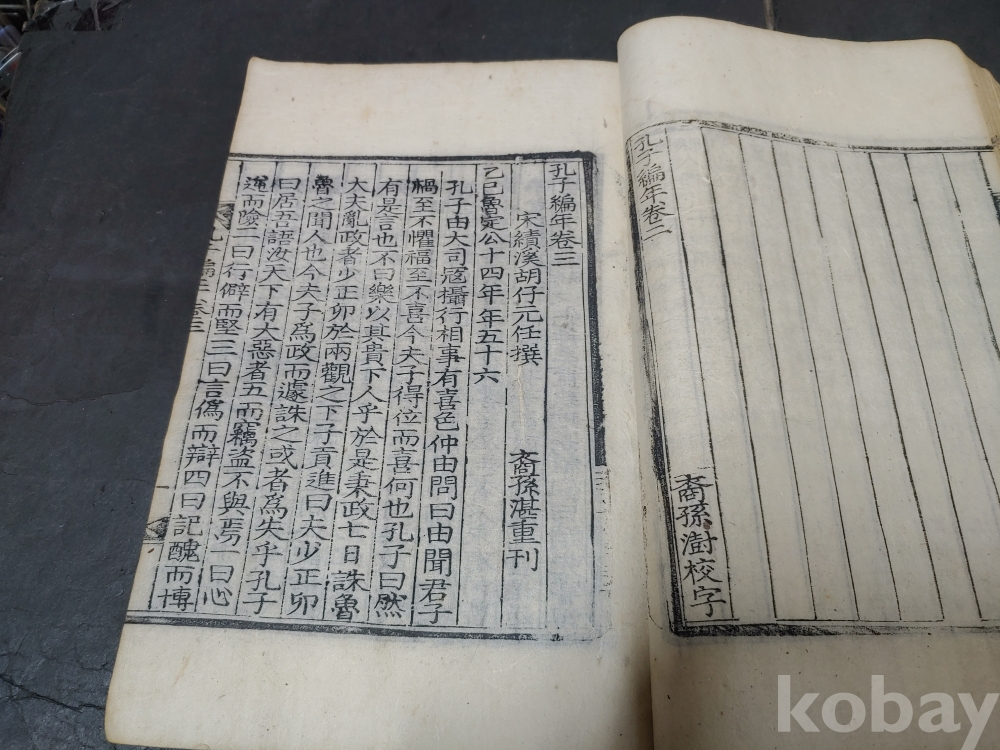 孔子編年卷二
裔孫澍校字
孔子編年卷三
宋績溪胡仔元任撰 裔孫湛重刊
乙巳魯定公十四年年五十六
孔子由大司寇攝行相事有喜色仲由問曰由聞君子
禍至不懼福至不喜今夫子得位而喜何也孔子曰然
有是言也不曰樂以其貴下人乎於是秉政七日誅魯
大夫亂政者少正卯於兩觀之下子貢進曰夫少正卯
魯之聞人也今夫子爲政而遽誅之或者爲失乎孔子
曰居吾語汝天下有大惡者五而竊盜不與焉一曰心
逆而險二曰行僻而堅三曰言僞而辯四曰記醜而博
孔子編年卷三
kobay